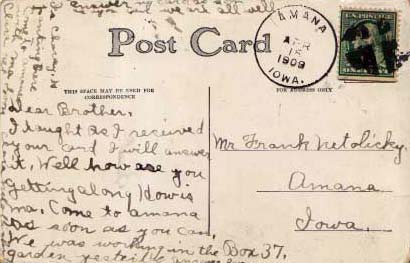 Post Card
THIS SPACE MAY BE USED FOR
CORRESPONDENCE
FOR ADDRESS ONLY
AMANA
APR
1909
IOWA.
Dear Brother,
I taught as I received
your card I will answer
it, Well how are you
getting along How is
ma. Come to amana
as soon as you can,
We was working in the
garden
Mr Frank Netolicky
Amana
Iowa.
Box 37,
answer
we are all well